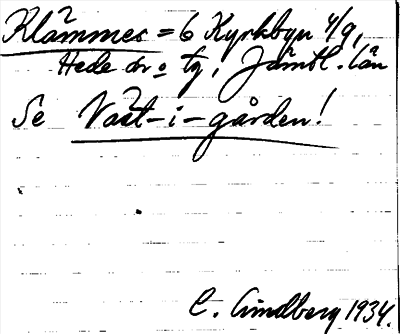 Klåmmes = 6 Kyrkbyn 4/9,
Hede sn o tg, Jämtl. län
Se Vast-i-gården!
C. Lindberg 1934.